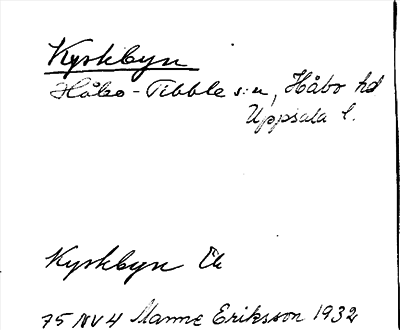 Kyrkbyn
Håbo-Tibble s:n, Håbo hd
Uppsala l.
Kyrkbyn Ek
75 NV 4 Manne Eriksson 1932